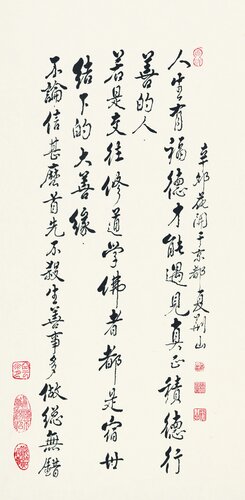 辛卯花開于京都夏荆山
人生有福德才能遇見真正積德行
善的人.
若是交往修道學佛者都是宿世
結下的大善緣.
不論信甚麼首先不殺生善事多做總無錯